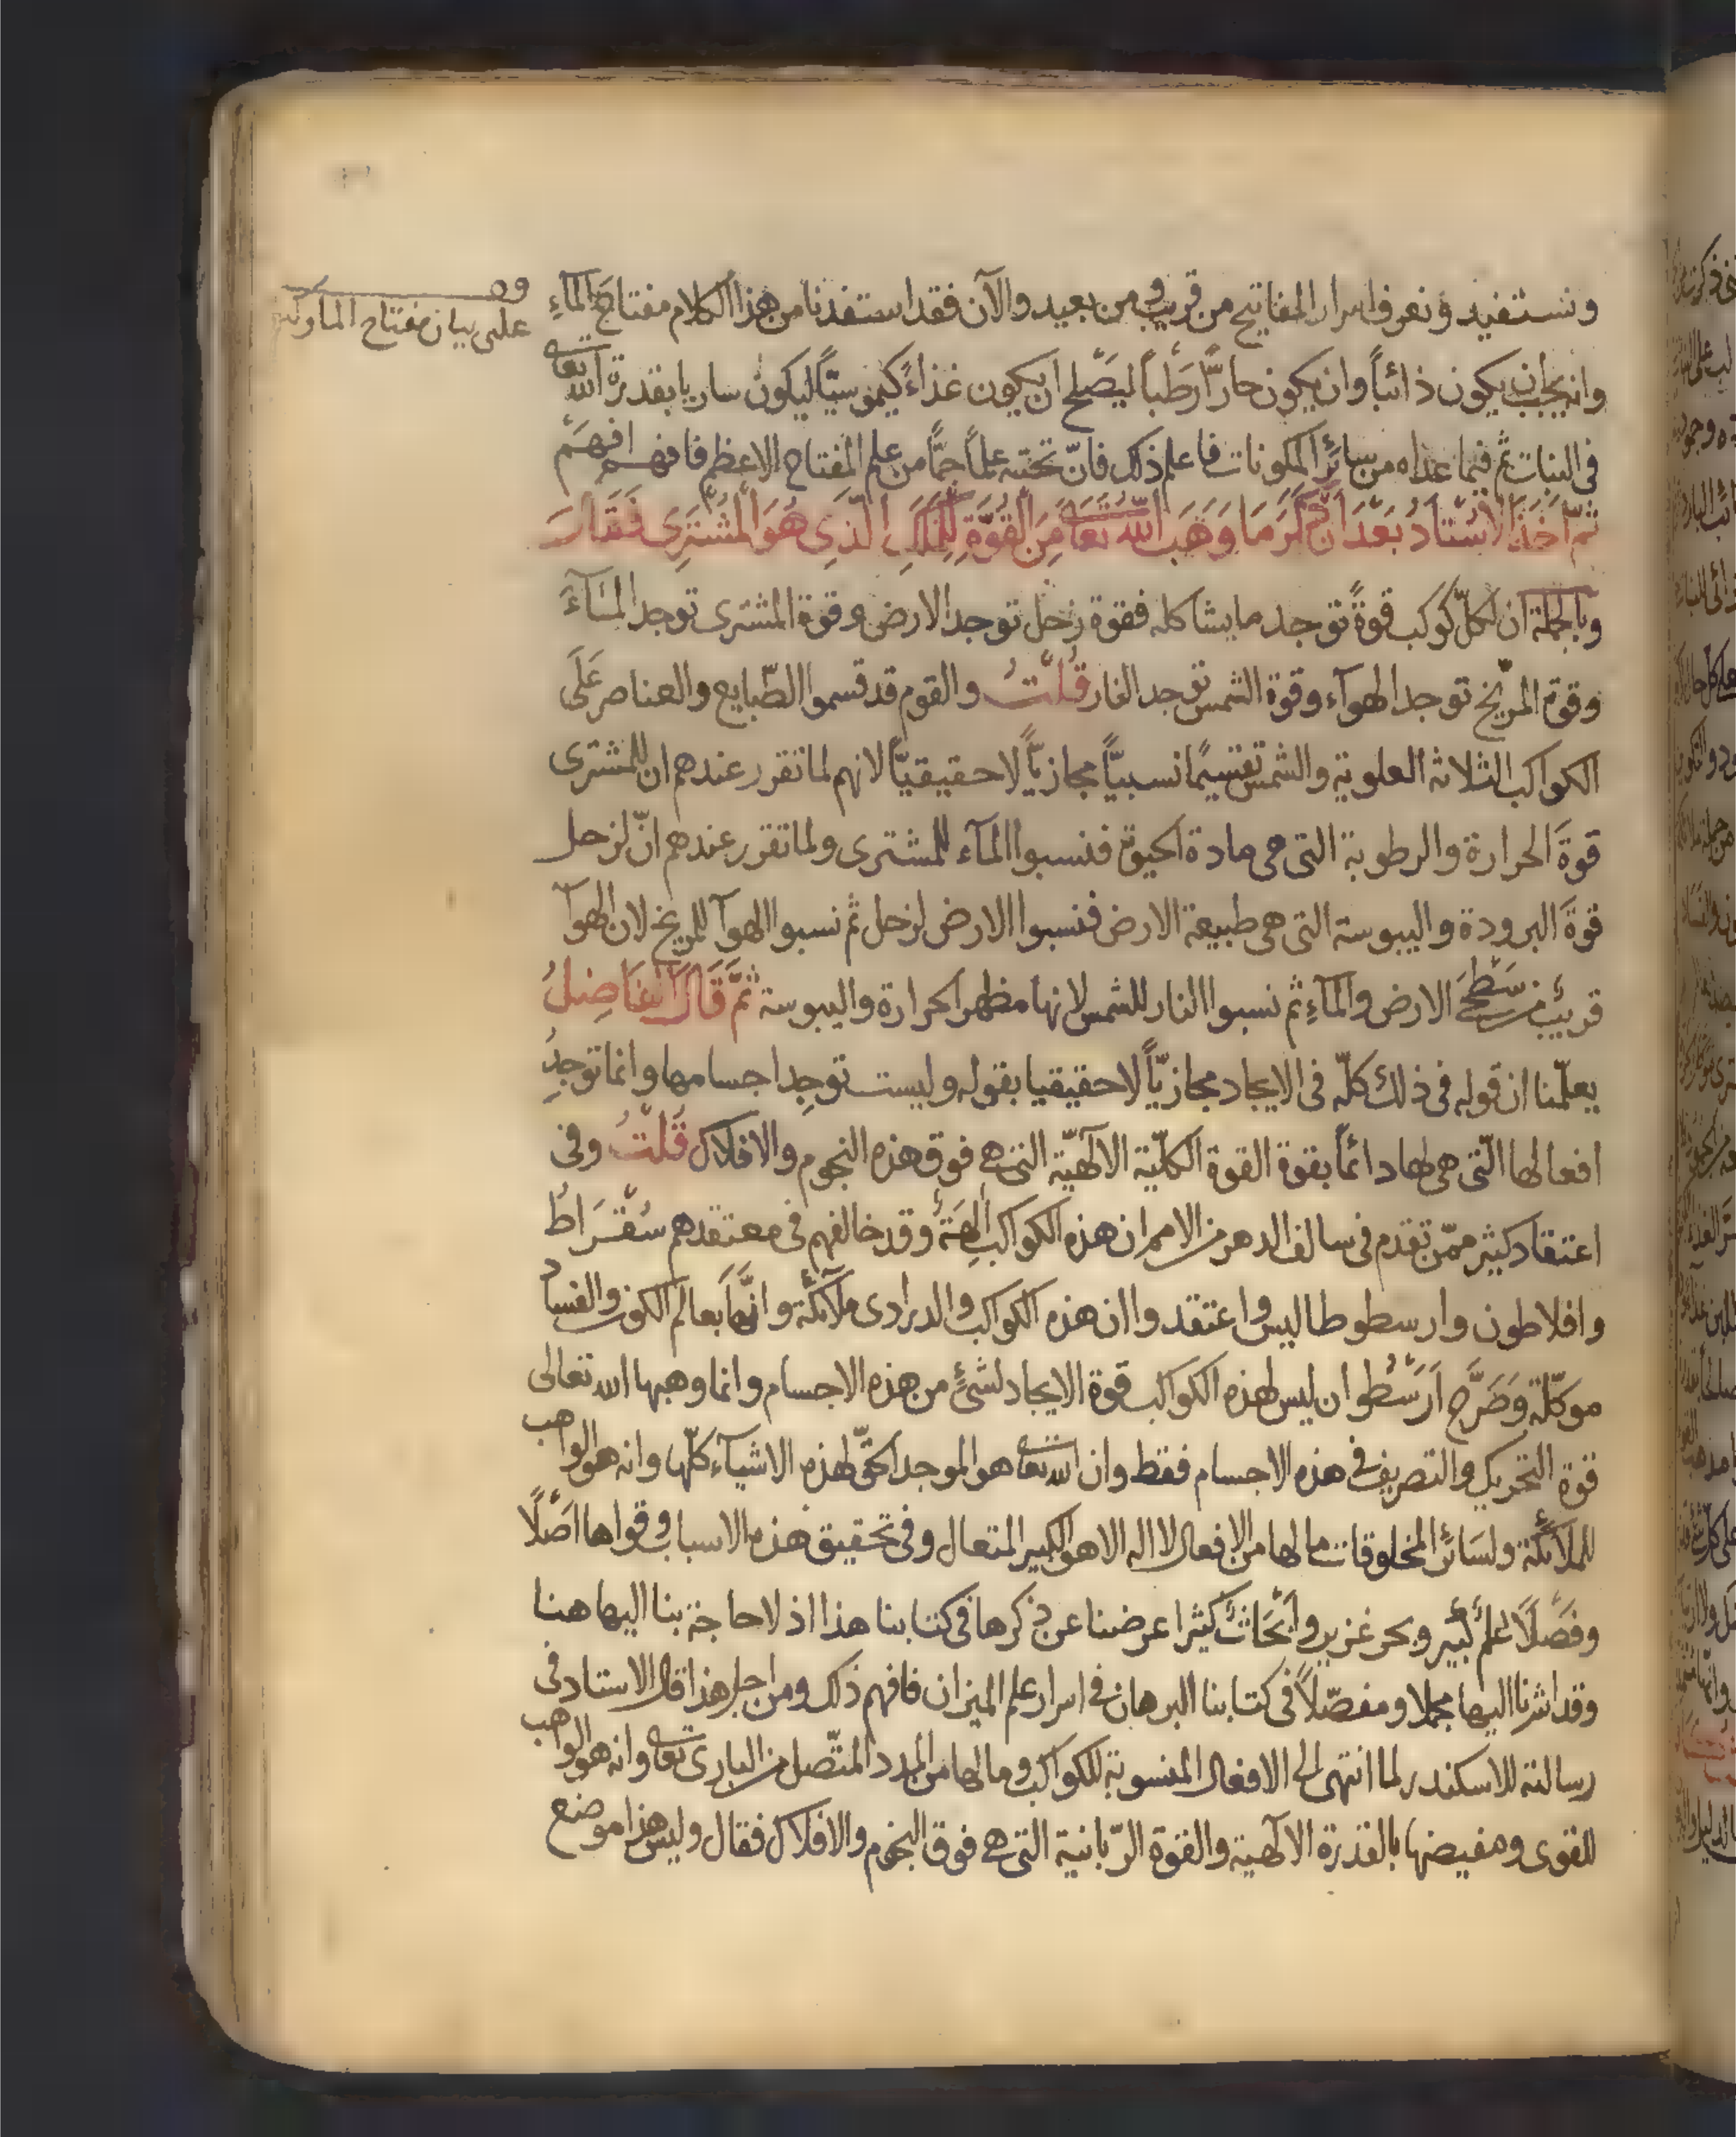 ونستفيد ونعرف اسرار المفاتيح من قريب ومن بعيد والآن فقد استفدنا من هذا الكلام مفتاح المآءِ
وانه يجب ان يكون ذائباً وان يكون حارّاً رَطباً ليصَلح ان يكون غذاءً كيموسيّاً ليكون ساريا بقدرة الله تعا
فى النبات ثم فيما عداه من سائر المكونات فاعلم ذلك فانّ تحته علماً جمّاً من علم المفتاح الاعظم فافهم افهَم
ثمّ اَخَذَ الاُستادُ بَعْدَ اَنْ ذَكَرَ مَا وَهَبَ اللّهُ تَعَا مِنَ القُوَّةِ لِلْفَلَكِ الّذِى هُوَ المُشتَرِى فَقَالَ
وباجملة ان لكلّ كوكب قوةً توجد ما يشاكله فقوة زحل توجد الارض وقوة المشترى توجد المآءَ
وقوة المرّيخ توجد الهوآء وقوة الشمس توجد النار قُلتُ والقوم قد قسموا الطّبايع والعناصر عَلَى
الكواكب الثلاثة العلوية والشمس تقسيمًا نسبيّاً مجازيّاً لا حقيقيّاً لانهم لما تقرر عندهم ان للمشترى
قوةَ الحرارة والرطوبة التى هى مادة الحيوة فنسبوا المآء للمشترى ولما تقرر عندهم انّ لزحل
قوةَ البرودة واليبوسة التى هى طبيعة الارض فنسبوا الارض لزحل ثم نسبوا الهوآ للمريخ لان الهوآ
قريبٌ من سَطْحَى الارض والمآءِ ثم نسبوا النار للشمس لانها مظهر الحرارة واليبوسة ثمَّ قَالَ الفَاضِلُ
يعلّمنا ان قوله فى ذلك كلّه فى الايجاد مجازيّاً لا حقيقيا بقوله وليست توجِد اجسامها وانما توجِدُ
افعالها الّتى هى لها دائماً بقوة القوة الكلّية الالٓهيّة التى هى فوق هذه النجوم والافلاك قُلتُ وفى
اعتقاد كثير ممّن تقدم فى سالف الدهر من الامم ان هذه الكواكب الِهَةٌ وقد خالفهم فى معتقدهم سُقْرَاطُ
وافلاطون وارسطوطاليس واعتقدوا ان هذه الكواكب والدرارى ملآئكة وانَّها بعالم الكون والفساد
موكّلة وَصَرَّح اَرَسْطُوا ان ليس لهذه الكواكب قوة الايجاد لشئٍ من هذه الاجسام وانما وهبها الله تعالى
قوة التحريك والتصريف فى هذه الاجسام فقط وان الله تعا هو الموجد الحقّ لهذه الاشيآء كلّها وانه هو الواهب
للملآئكة ولسَائر المخلوقات ما لها من الافعال لا اله الا هو الكبير المتعال وفى تحقيق هذه الاسباب وقواها اَصْلًا
وفَصَلًا علمٌ كبير وبحر غزير وابْحَاثٌ كثيرا عرضنا عن ذكرها فى كتابنا هذا اذ لا حاجة بنا اليها هنا
وقد اشرنا اليها مجملا ومفصّلاً فى كتابنا البرهان فى اسرار علم الميزان فافهم ذلك ومن اجل هذا قال الاستاد فى
رسالته للاسكندر لما انتهى الى الافعال المنسوبة للكواكب وما لها من المدد المتّصل من البارى تعا وانه هو الواهب
للقوى ومفيضها بالقدرة الالٓهية والقوة الرّبانية التى هى فوق النجوم والافلاك فقال وليس هذا موضع
على بيان مفتاح الما